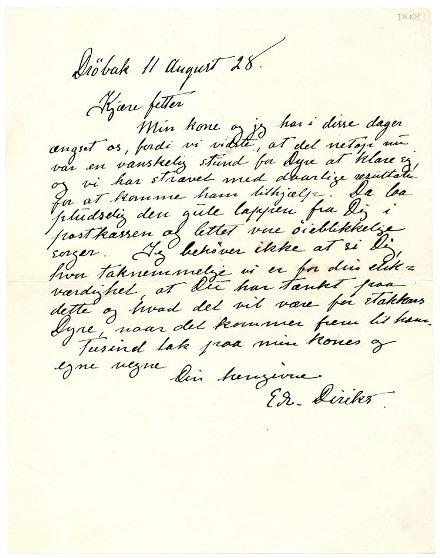 Dröbak 11 August 28.
Kjære fetter
Min kone og jeg har i disse dager
ængset os, fordi vi vidste, at det netop nu
var en vanskelig stund for Dyre at klare sig,
og vi har strævet med daarlige resultater
for at komme ham til hjælp. Da laa
pludselig den gule lappen fra Dig i
postkassen og lettet vore öieblikkelige
sorger. Jeg behöver ikke at si Dig,
hvor taknemmelige vi er for din elsk=
værdighet at Du har tænkt paa
dette og hvad det vil være for stakkars
Dyre, naar det kommer frem til ham.
Tusind tak paa min kones og
egne vegne
Din hengivne
Edv. Diriks.